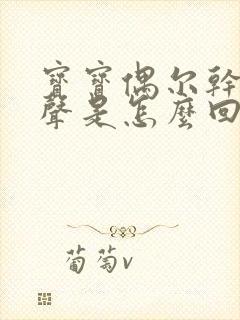 寶寶偶尔幹
聲是怎麼回
葡萄v